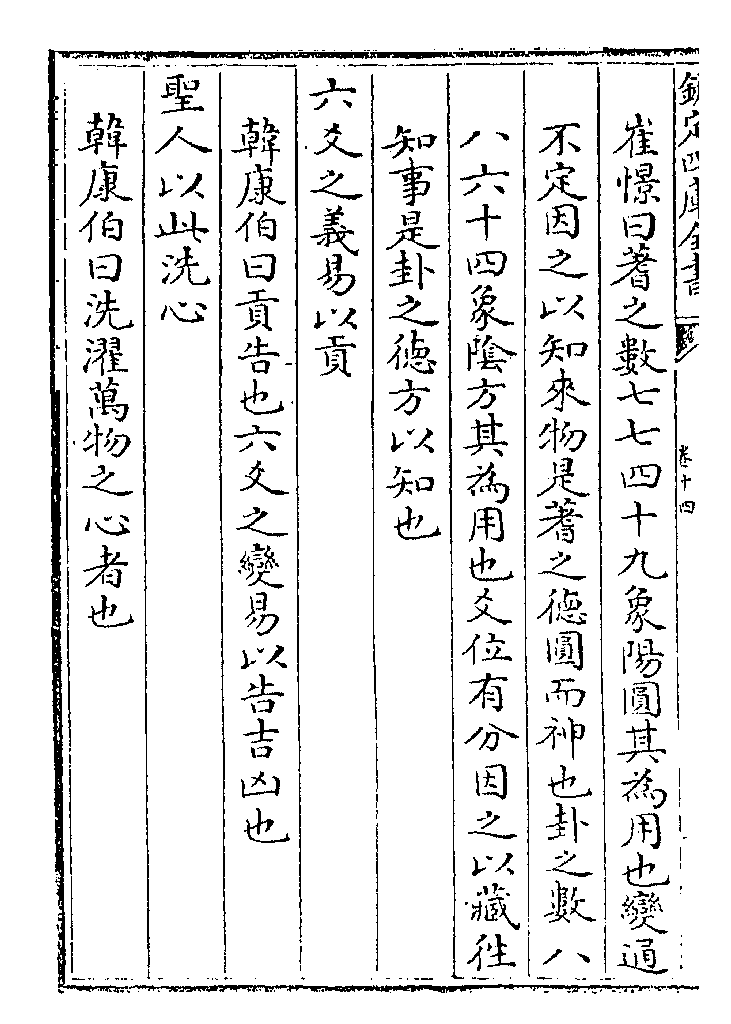 欽定四庫全書
卷十四
崔憬曰蓍之數七七四十九象陽圓其為用也變通
不定因之以知來物是蓍之德圓而神也卦之數八
八六十四象陰方其為用也爻位有分因之以藏往
知事是卦之德方以知也
六爻之義易以貢
韓康伯曰貢告也六爻之變易以告吉凶也
聖人以此洗心
韓康伯曰洗濯萬物之心者也